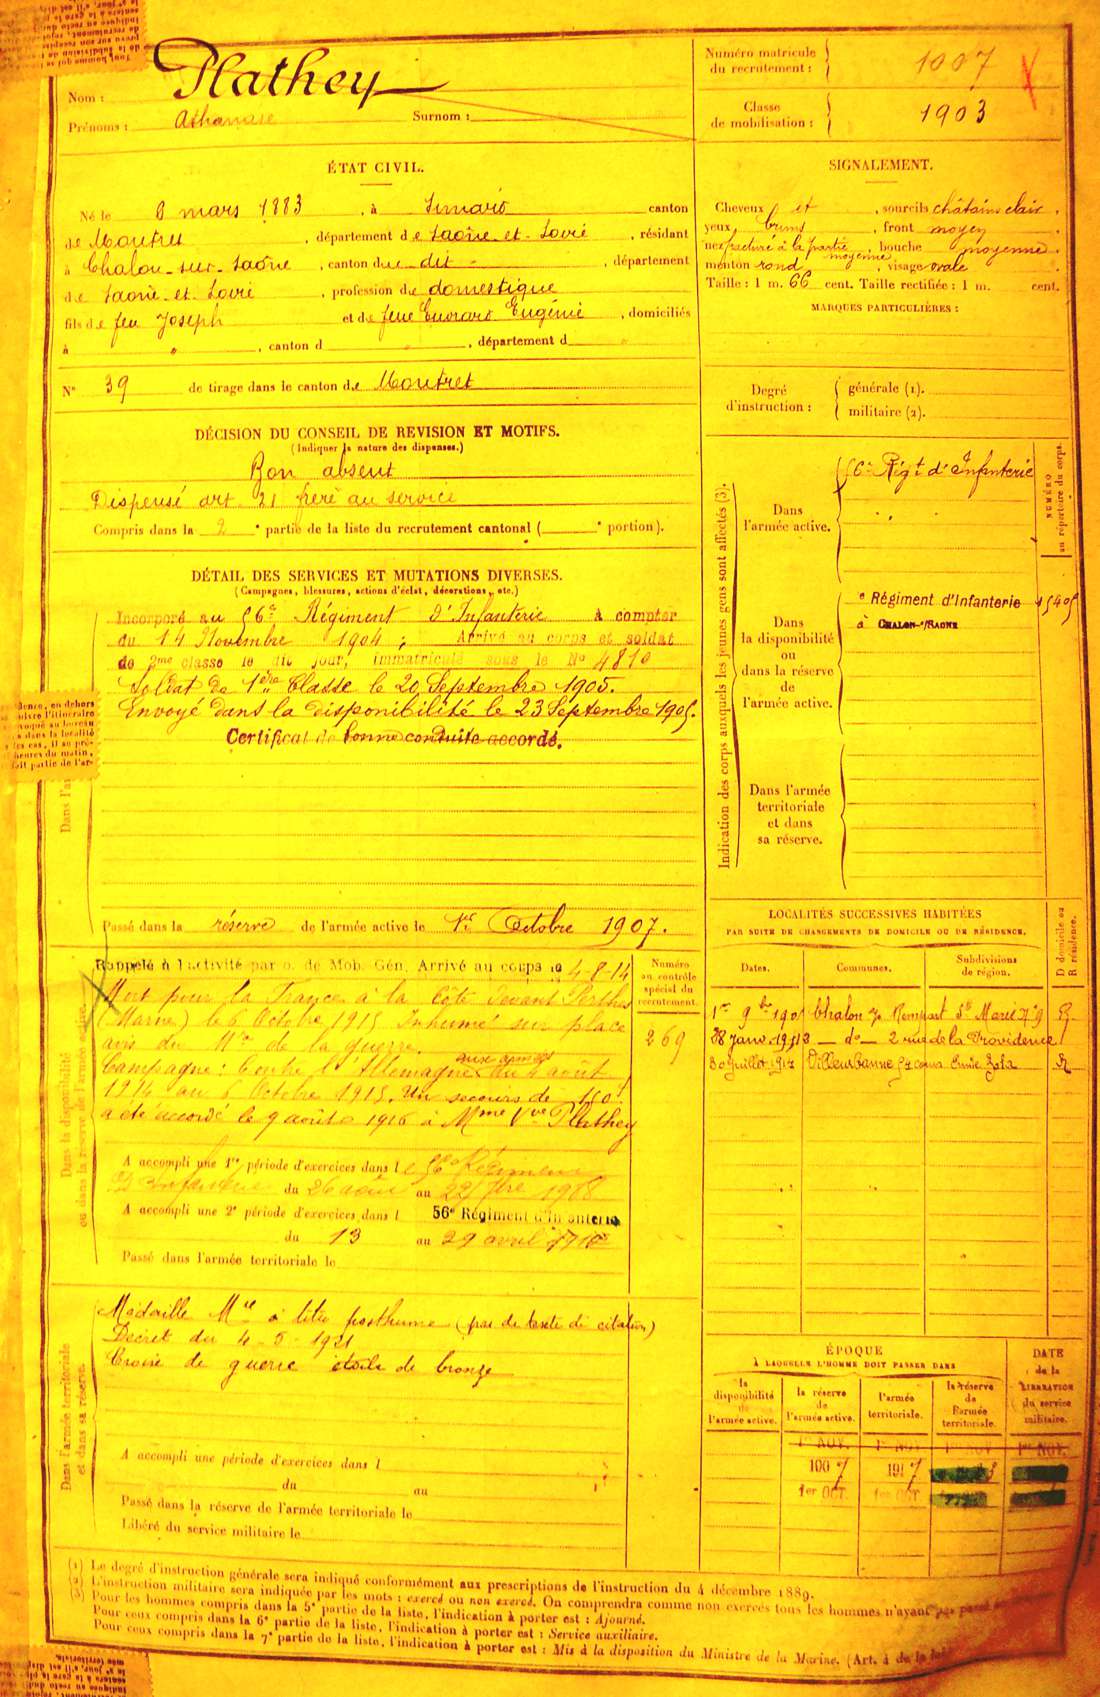 Nom : Plathey
Prénoms : Athanase Surnom :
Numéro matricule du recrutement : 1007
Classe de mobilisation : 1903
ÉTAT CIVIL.
Né le 8 mars 1883, à Simard canton
de Montret, département de Saône-et-Loire, résidant
à Chalon-sur-Saône, canton du dit, département
de Saône-et-Loire, profession de domestique
fils de feu Joseph et de feue Eugénie, domiciliés
à " , canton d " , département d "
N° 39 de tirage dans le canton de Montret
SIGNALEMENT.
Cheveux et , sourcils châtains clair.
yeux bruns, front moyen
nez fracturé à la partie moyenne, bouche moyenne.
menton rond, visage ovale
Taille : 1 m. 66 cent. Taille rectifiée : 1 m. cent.
MARQUES PARTICULIÈRES :
Degré d'instruction : générale (1).
militaire (2).
DÉCISION DU CONSEIL DE REVISION ET MOTIFS.
(Indiquer la nature des dispenses.)
Bon absent
Dispensé art. 21 frère au service
Compris dans la 2e partie de la liste du recrutement cantonal ( e portion).
DÉTAIL DES SERVICES ET MUTATIONS DIVERSES.
(Campagnes, blessures, actions d'éclat, décorations, etc.)
Incorporé au 56e Régiment d'Infanterie à compter
du 14 Novembre 1904 ; Arrivé au corps et soldat
de 2me classe le dit jour, immatriculé sous le No 4810
Soldat de 1ère Classe le 20 Septembre 1905.
Envoyé dans la disponibilité le 23 Septembre 1905.
Certificat de bonne conduite accordé.
Dans l'ar
Passé dans la réserve de l'armée active le 1er Octobre 1907.
Indication des corps auxquels les jeunes gens sont affectés (3).
Dans l'armée active.
56e Régt d'Infanterie
NUMÉRO au répertoire du corps.
Dans la disponibilité ou dans la réserve de l'armée active.
e Régiment d'Infanterie
à CHALON-s/SAONE
Dans l'armée territoriale et dans sa réserve.
Dans la disponibilité ou dans la réserve de l'armée active.
Rappelé à l'activité par o. de Mob. Gén. Arrivé au corps le 4-8-14
Mort pour la France à la Côte devant Perthes
(Marne) le 6 Octobre 1915 Inhumé sur place
avis du Mre de la guerre.
Campagne : Contre l'Allemagne aux armées du 4 août
1914 au 6 Octobre 1915. Un secours de 150f
a été accordé le 9 août 1916 à Mme Vve Plathey
Numéro au contrôle spécial du recrutement.
269
A accompli une 1re période d'exercices dans le 56e Régiment
d'Infanterie du 26 août au 22 7bre 1908
A accompli une 2e période d'exercices dans l 56e Régiment d'Infanterie
du 13 au 29 avril
Passé dans l'armée territoriale le
LOCALITÉS SUCCESSIVES HABITÉES
PAR SUITE DE CHANGEMENTS DE DOMICILE OU DE RÉSIDENCE.
Dates. Communes. Subdivisions de région. D domicile ou R résidence.
Chalon Rempart Ste Marie
do 2 rue de la Providence
30 juillet Villeurbanne cours Emile Zola R
Dans l'armée territoriale et dans sa réserve.
Médaille Mre à titre posthume (pas de texte de citation)
Décret du 4-5-1921
Croix de guerre étoile de bronze
A accompli une période d'exercices dans l
du au
Passé dans la réserve de l'armée territoriale le
Libéré du service militaire le
ÉPOQUE
À LAQUELLE L'HOMME DOIT PASSER DANS
la disponibilité de l'armée active. la réserve de l'armée active. l'armée territoriale. la réserve de l'armée territoriale.
DATE de la LIBÉRATION du service militaire.
1er NOV. 1er NOV. 1er NOV. 1er NOV.
1907 1917
1er OCT. 1er OCT.
(1) Le degré d'instruction générale sera indiqué conformément aux prescriptions de l'instruction du 4 décembre 1889.
(2) L'instruction militaire sera indiquée par les mots : exercé ou non exercé. On comprendra comme non exercés tous les hommes n'ayant pas passé
(3) Pour les hommes compris dans la 5e partie de la liste, l'indication à porter est : Ajourné.
Pour ceux compris dans la 6e partie de la liste, l'indication à porter est : Service auxiliaire.
Pour ceux compris dans la 7e partie de la liste, l'indication à porter est : Mis à la disposition du Ministre de la Marine. (Art. 4 de la